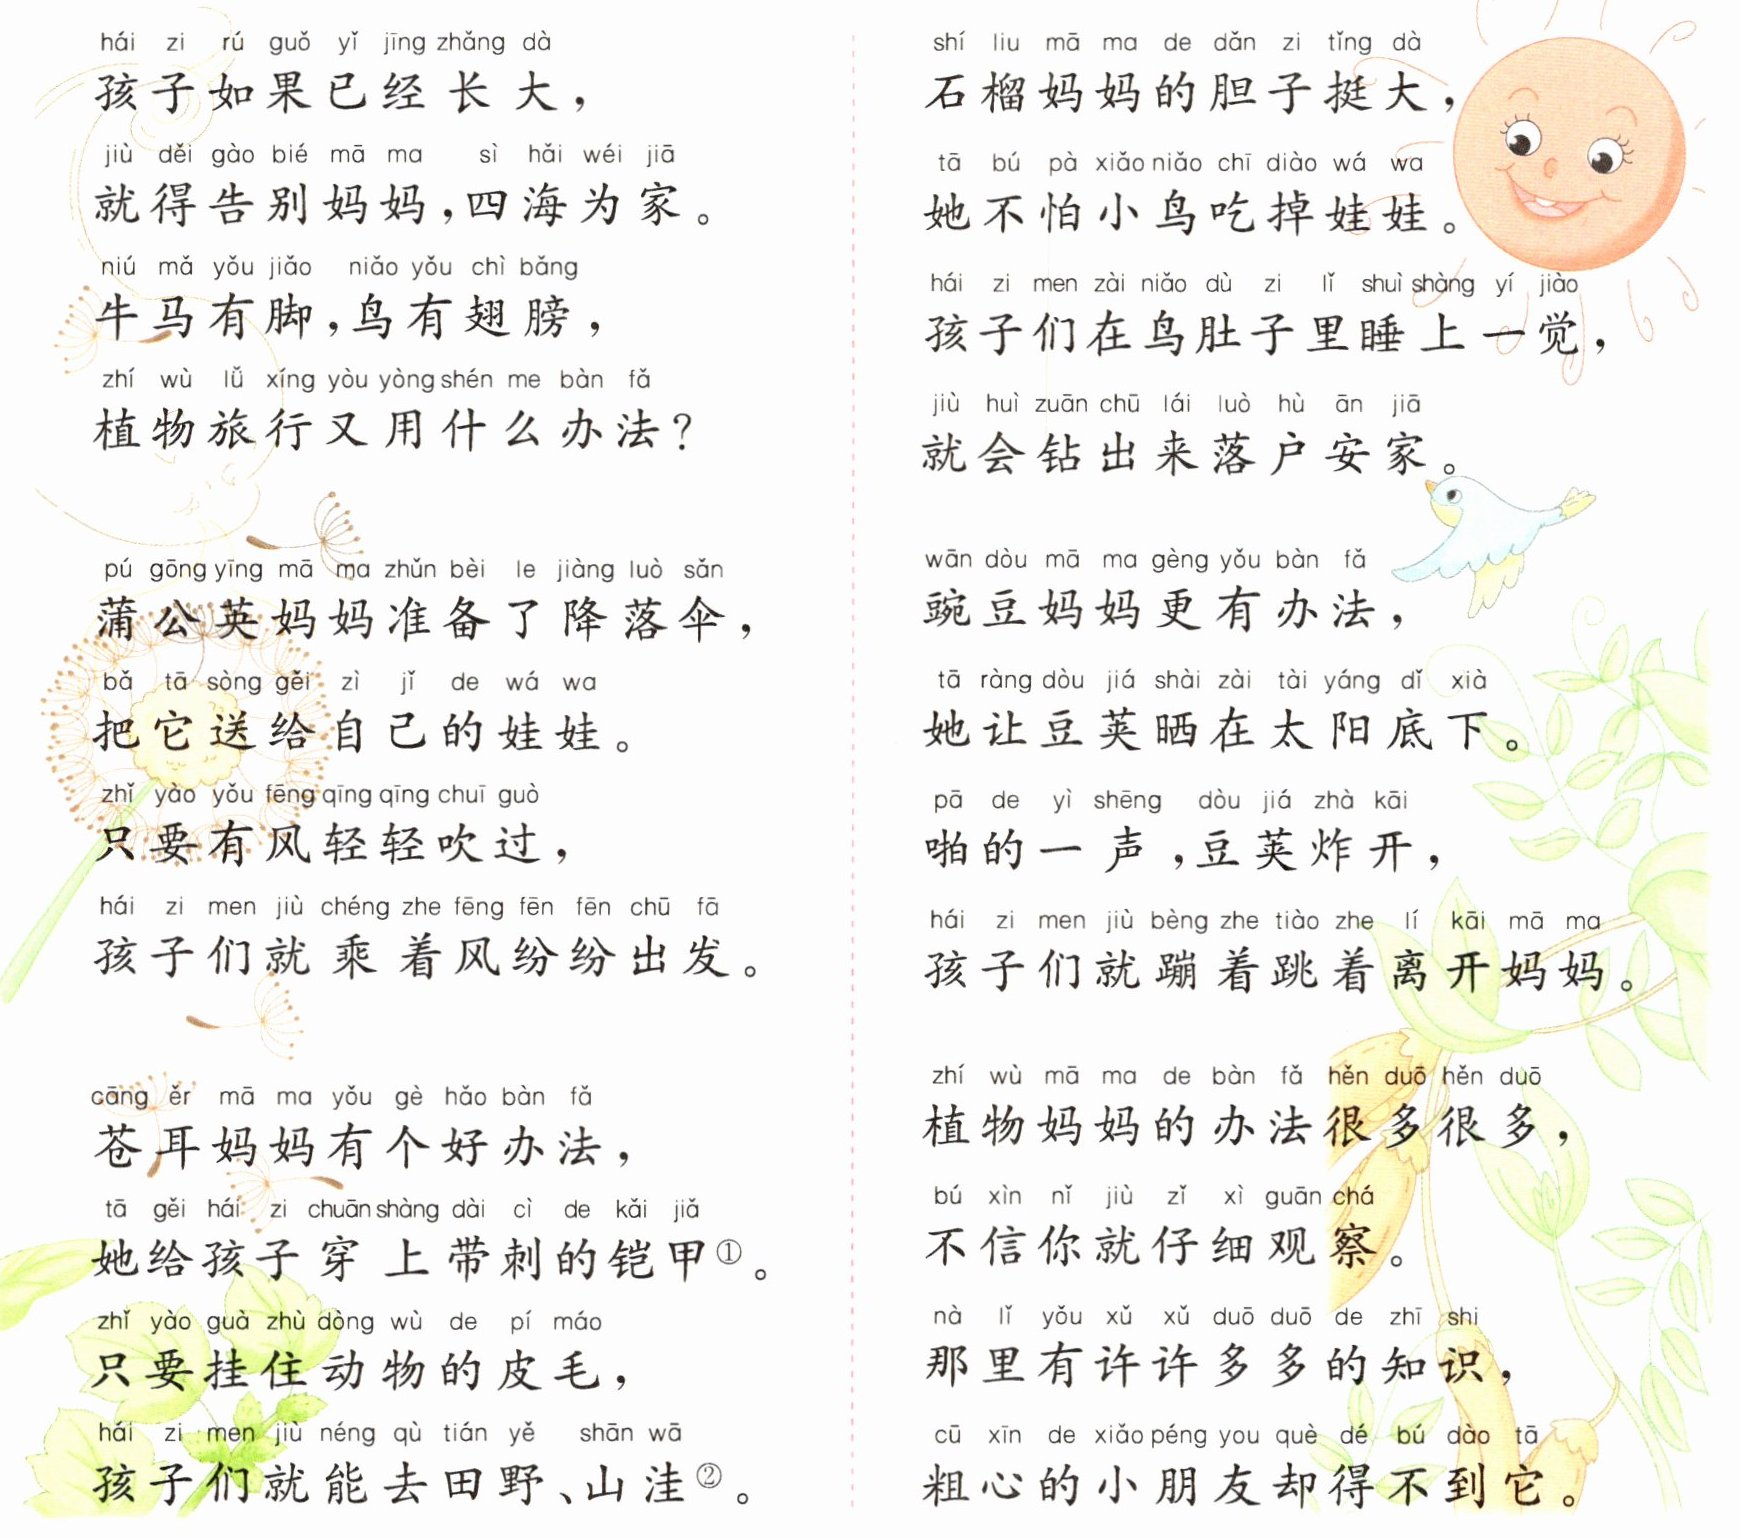 hái zi rú guǒ yǐ jīng zhǎng dà
孩子如果已经长大，
jiù děi gào bié mā ma sì hǎi wéi jiā
就得告别妈妈，四海为家。
niú mǎ yǒu jiǎo niǎo yǒu chì bǎng
牛马有脚，鸟有翅膀，
zhí wù lǚ xíng yòu yòng shén me bàn fǎ
植物旅行又用什么办法？
pú gōng yīng mā ma zhǔn bèi le jiàng luò sǎn
蒲公英妈妈准备了降落伞，
bǎ tā sòng gěi zì jǐ de wá wa
把它送给自己的娃娃。
zhǐ yào yǒu fēng qīng qīng chuī guò
只要有风轻轻吹过，
hái zi men jiù chéng zhe fēng fēn fēn chū fā
孩子们就乘着风纷纷出发。
cāng ěr mā ma yǒu gè hǎo bàn fǎ
苍耳妈妈有个好办法，
tā gěi hái zi chuān shàng dài cì de kǎi jiǎ
她给孩子穿上带刺的铠甲①。
zhǐ yào guà zhù dòng wù de pí máo
只要挂住动物的皮毛，
hái zi men jiù néng qù tián yě shān wā
孩子们就能去田野、山洼②。
shí liu mā ma de dǎn zi tǐng dà
石榴妈妈的胆子挺大，
tā bú pà xiǎo niǎo chī diào wá wa
她不怕小鸟吃掉娃娃。
hái zi men zài niǎo dù zi lǐ shuì shàng yí jiào
孩子们在鸟肚子里睡上一觉，
jiù huì zuān chū lái luò hù ān jiā
就会钻出来落户安家。
wān dòu mā ma gèng yǒu bàn fǎ
豌豆妈妈更有办法，
tā ràng dòu jiá shài zài tài yáng dǐ xià
她让豆荚晒在太阳底下。
pā de yì shēng dòu jiá zhà kāi
啪的一声，豆荚炸开，
hái zi men jiù bèng zhe tiào zhe lí kāi mā ma
孩子们就蹦着跳着离开妈妈。
zhí wù mā ma de bàn fǎ hěn duō hěn duō
植物妈妈的办法很多很多，
bú xìn nǐ jiù zǐ xì guān chá
不信你就仔细观察。
nà lǐ yǒu xǔ xǔ duō duō de zhī shi
那里有许许多多的知识，
cū xīn de xiǎo péng you què dé bú dào tā
粗心的小朋友却得不到它。